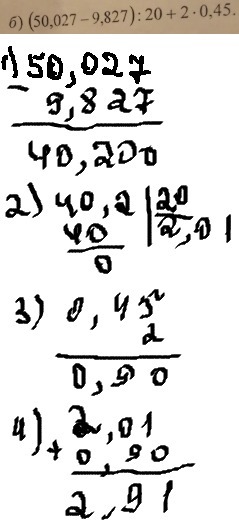 б) (50,027 – 9,827) : 20 + 2 · 0,45.
1) 50,027
– 9,827
40,200
2) 40,2 | 20
40 2,01
0
3) 0,45
2
0,90
4) 2,01
+ 0,90
2,91